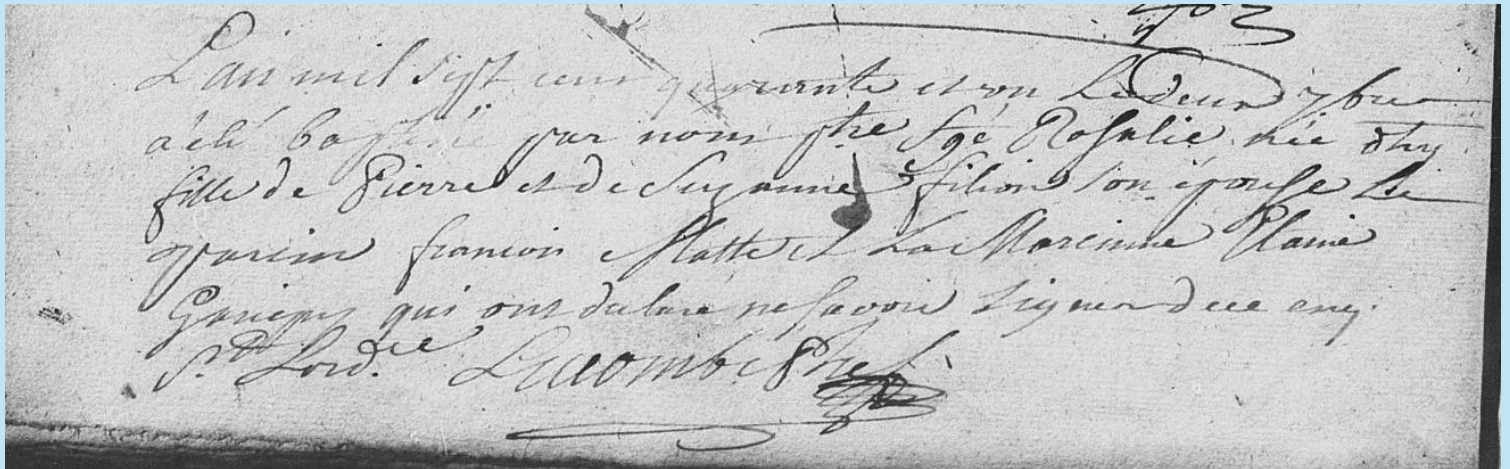 L'an mil sept cent quarante et un Le deux 7bre
a été baptisée par nous ptre Sgé Rosalie née d'hy
fille de Pierre et de Suzanne filion son épouse Le
parein francois Matte et La Mareinne
qui ont declaré ne savoir signer de ce enq.
Lacombe Ptre